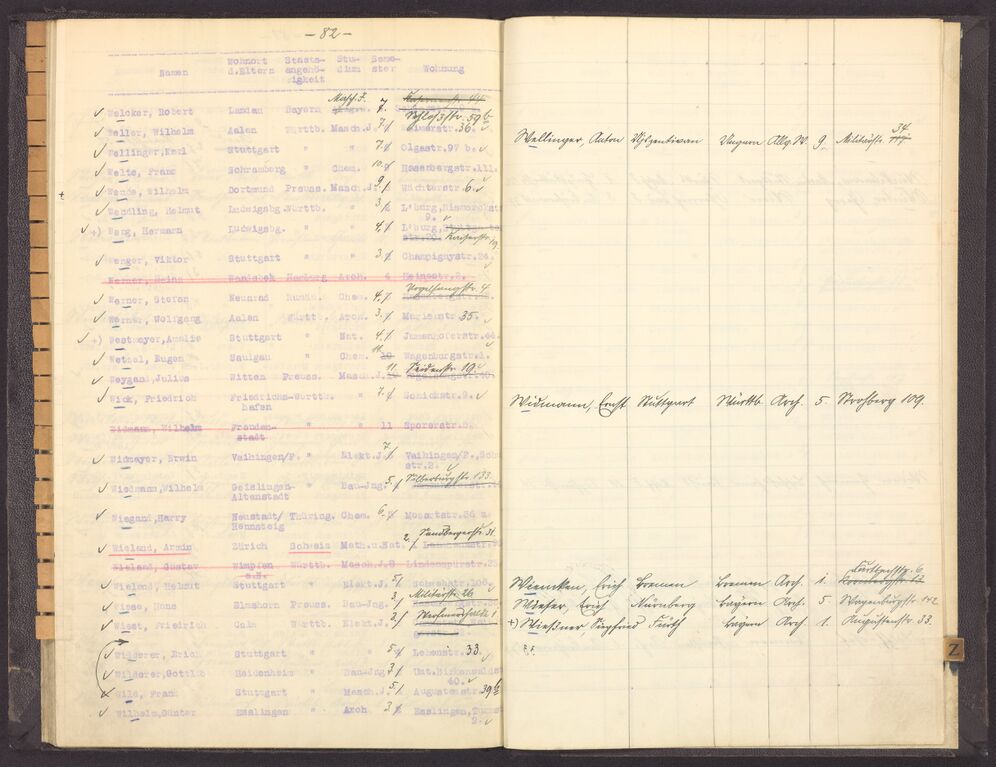 - 82 -
Namen Wohnort d.Eltern Staats-angehö-rigkeit Stu-dium Seme-ster Wohnung
Welcker, Robert Landau Bayern Masch.J. 7. Schloßstr. 59 b
Weller, Wilhelm Aalen Württb. Masch.J. 7. 36.
Wellinger,Karl Stuttgart " " 7. Olgastr.97 b.
Welte, Franz Schramberg " Chem. 10. Hasenbergstr.111.
Wende, Wilhelm Dortmund Preuss. Masch.J. 9. Wächterstr. 6.
Wendling, Helmut Ludwigsbg. Württb. " 3. L'burg,Bismarckstr
9.
+) Weng, Hermann Ludwigsbg. " " 4. L'burg,
Kaiserstr. 19.
Wenger, Viktor Stuttgart " " 3. Champignystr.24.
Werner, Heinz Wandsbek Hamburg Arch. 4 Heinestr.2.
Vogelsangstr. 4
Werner, Stefan Neunrad Rumän. Chem. 4.
Werner, Wolfgang Aalen Württb. Arch. 3. Marienstr 35.
+) Westmeyer, Amalie Stuttgart " Nat. 4. Jumenhoferstr.44.
Wetzel, Eugen Saulgau " Chem. 11. 10 Wagenburgstr.1.
Weygand,Julius Witten Preuss. Masch.J. 11. Seidenstr. 19
Wick, Friedrich Friedrichs-hafen Württb. " 7. Senickstr.9.
Widmann, Wilhelm Freuden-stadt " " 11 Sporerstr.5.
Widmayer, Erwin Vaihingen/F. " Elekt.J. 7. Vaihingen/F.,
str.2.
Wiedmann,Wilhelm Geislingen-Altenstadt " Bau-Jng. 5. Silberburgstr. 133.
Wiegand,Harry Neustadt/Rennsteig Thüring. Chem. 6. Mozartstr.36
Wieland, Armin Zürich Schweiz Math.u.Nat. 2. Sandbergerstr. 31
Wieland, Gustav Wimpfen a.N. Württb. Masch.J.8 Lindenspürstr.35
Wieland, Helmut Stuttgart " Elekt.J. 5. 106.
Wiese, Hans Elmshorn Preuss. Bau-Jng. 3. Militärstr. 26
Wiest, Friedrich Calw Württb. Elekt.J. 2.
Wilderer, Erich Stuttgart " " 5. Lehenstr. 33.
Wilderer,Gottlob Heidenheim " Bau-Jng 3. Unt.Birkenwaldstr
40.
Wild, Frank Stuttgart " Masch.J. 5. Augustenstr. 39
Wilhelm,Günter Esslingen " Arch 3. Esslingen,
2.
Wellinger, Anton Ungarn Allg.W. 9. Militärstr. 34.
Widmann, Erich Stuttgart Württb Arch. 5. Strohberg 109.
Wiencken, Erich Bremen Bremen Arch. 1. 6
Wieser, Erich Nürnberg Bayern Arch. 5. Wagenburgstr. 142
+) Wießner, Siegfried Fürth Bayern Arch. 1. Augustenstr. 33.
Z